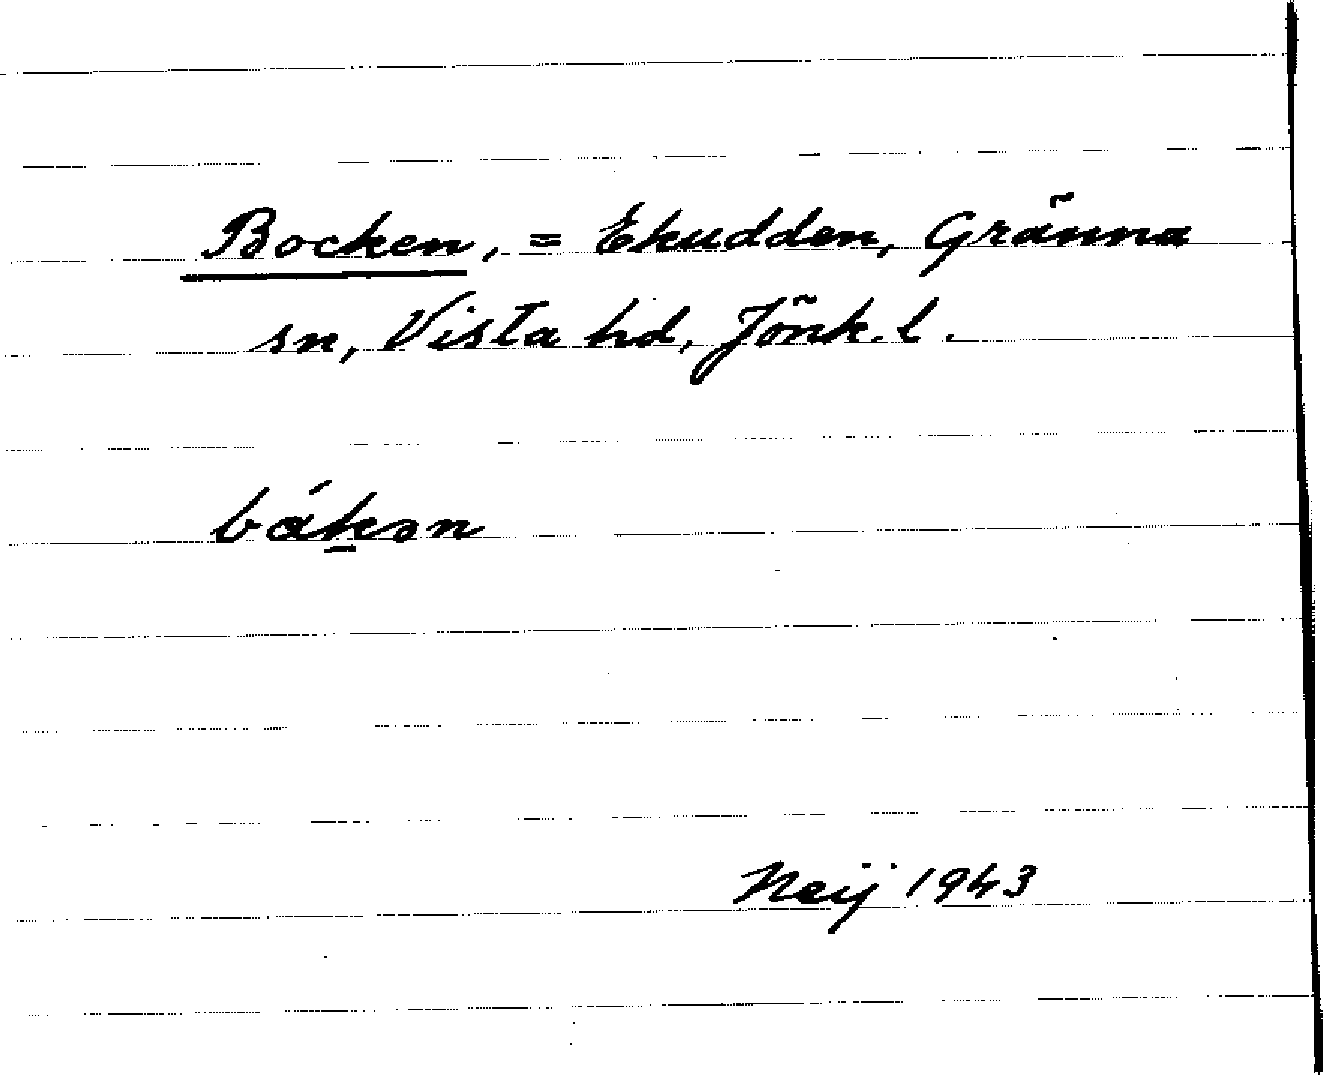 Bocken, = Ekudden, Gränna
sn, Vista hd, Jönk. l.
bák̲ən
Neij 1943